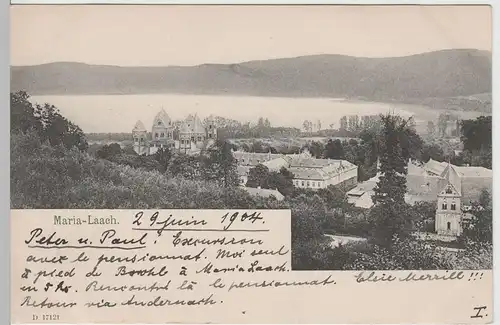 Maria-Laach. 29 juin 1904.
Peter u. Paul. Excursion
avec le pensionnat. Moi seul
à pied de Brohl à Maria Laach.
Rencontré là le pensionnat, Elsie Merrill!!!
Retour via Andernach.
D 17121
I.